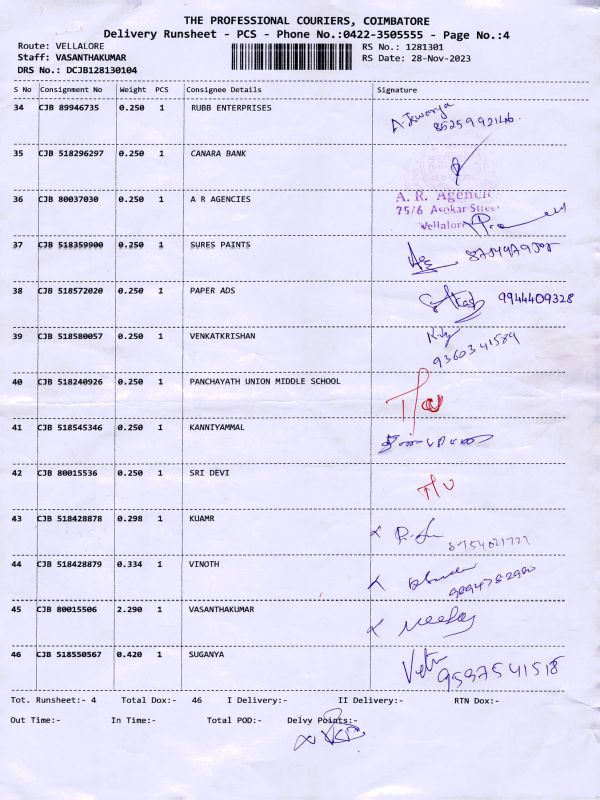 THE PROFESSIONAL COURIERS, COIMBATORE
Delivery Runsheet - PCS - Phone No.:0422-3505555 - Page No.:4
Route: VELLALORE RS No.: 1281301
Staff: VASANTHAKUMAR RS Date: 28-Nov-2023
DRS No.: DCJB128130104
S No Consignment No Weight PCS Consignee Details Signature
34 CJB 89946735 0.250 1 RUBB ENTERPRISES
35 CJB 518296297 0.250 1 CANARA BANK
36 CJB 80037030 0.250 1 A R AGENCIES
A. R. Agencie
75/6 Asokar Street
Vellalore
37 CJB 518359900 0.250 1 SURES PAINTS
38 CJB 518572020 0.250 1 PAPER ADS 9944409328
39 CJB 518580057 0.250 1 VENKATKRISHAN
9360341589
40 CJB 518240926 0.250 1 PANCHAYATH UNION MIDDLE SCHOOL
41 CJB 518545346 0.250 1 KANNIYAMMAL
42 CJB 80015536 0.250 1 SRI DEVI
43 CJB 518428878 0.298 1 KUAMR
44 CJB 518428879 0.334 1 VINOTH
45 CJB 80015506 2.290 1 VASANTHAKUMAR
46 CJB 518550567 0.420 1 SUGANYA
Tot. Runsheet:- 4 Total Dox:- 46 I Delivery:- II Delivery:- RTN Dox:-
Out Time:- In Time:- Total POD:- Delvy Points:-